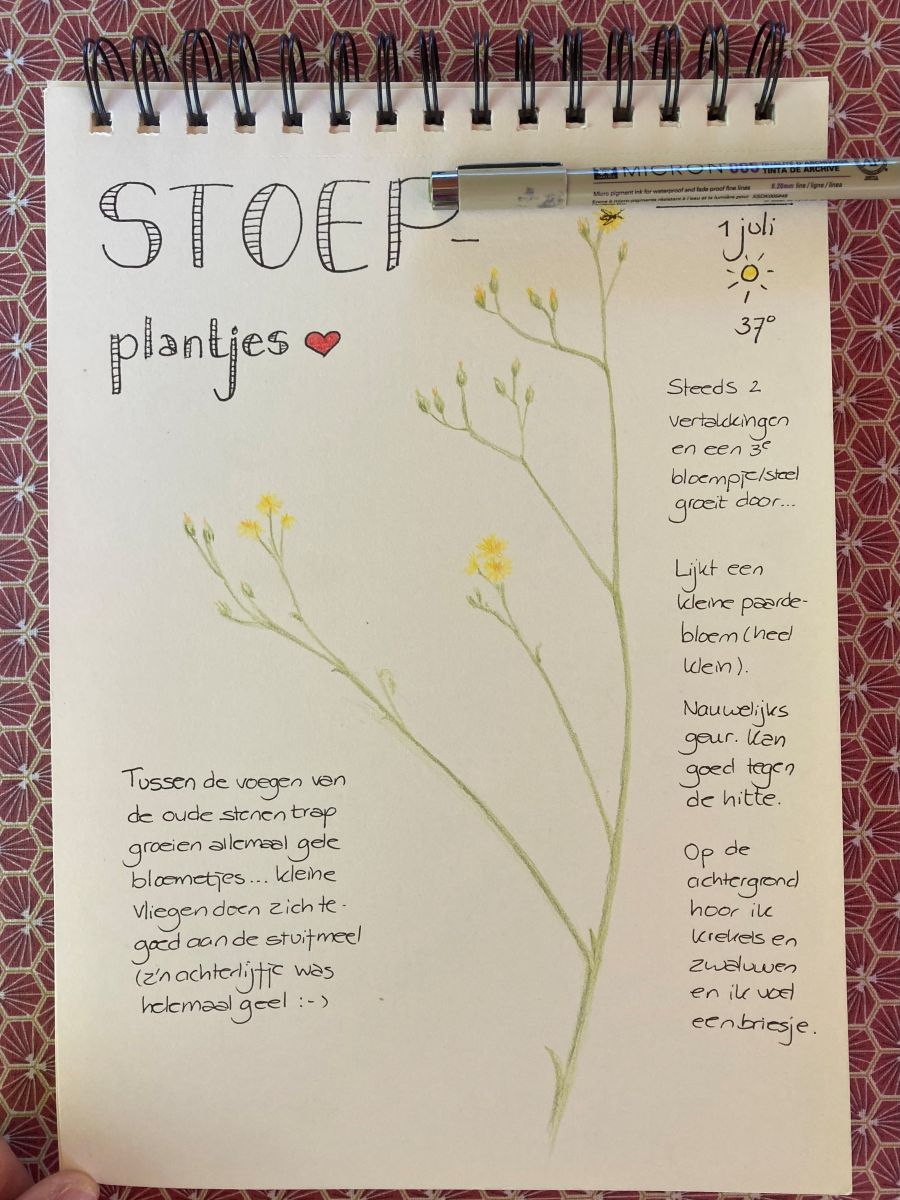 STOEP-
plantjes
MICRON 005
TINTA DE ARCHIVE
Micro pigment ink for waterproof and fade proof fine lines
0.20mm line / ligne / línea
1 juli
37°
Steeds 2
vertakkingen
en een 3e
bloempje/steel
groeit door...
Lijkt een
kleine paarde-
bloem (heel
klein).
Nauwelijks
geur. Kan
goed tegen
de hitte.
Op de
achtergrond
hoor ik
krekels en
zwaluwen
en ik voel
een briesje.
Tussen de voegen van
de oude stenen trap
groeien allemaal gele
bloemetjes... kleine
vliegen doen zich te-
goed aan de stuifmeel
(z'n achterlijfje was
helemaal geel :-)